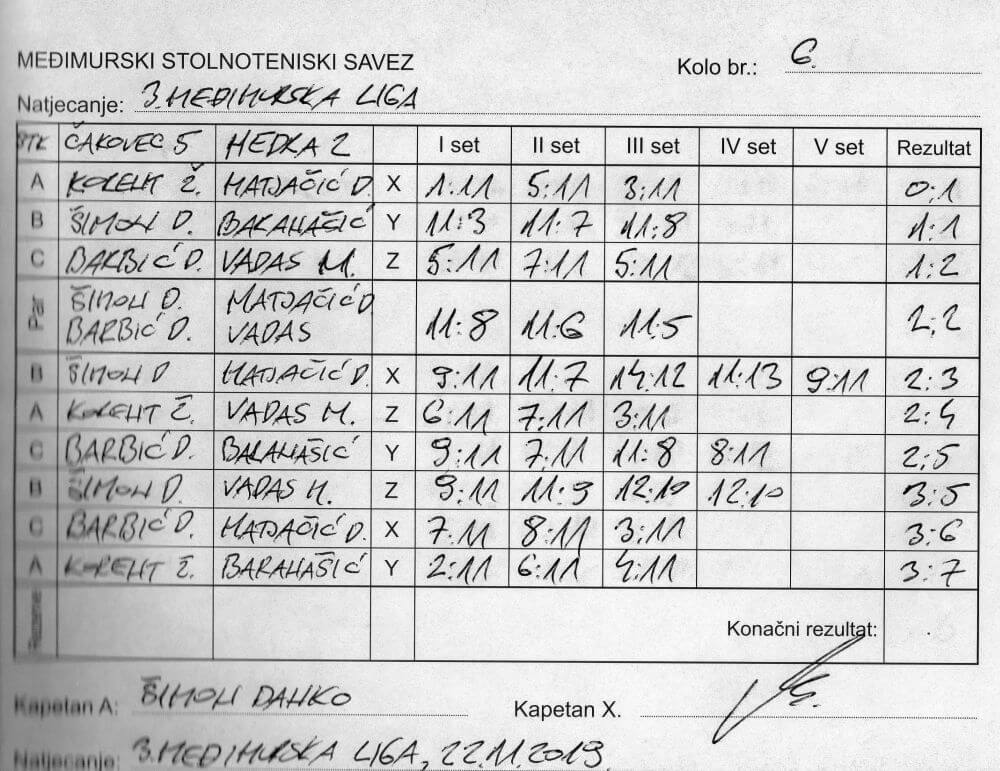 MEĐIMURSKI STOLNOTENISKI SAVEZ
Kolo br.: 6.
Natjecanje: 3. MEĐIMURSKA LIGA
STK ČAKOVEC 5 HEDKA 2 I set II set III set IV set V set Rezultat
A KORENT Ž. MATJAČIĆ D. X 1:11 5:11 3:11 0:1
B ŠIMON D. BARANAŠIĆ Y 11:3 11:7 11:8 1:1
C BARBIĆ D. VADAS M. Z 5:11 7:11 5:11 1:2
Par ŠIMON D. MATJAČIĆ D
BARBIĆ D. VADAS 11:8 11:6 11:5 2:2
B ŠIMON D MATJAČIĆ D. X 9:11 11:7 14:12 11:13 9:11 2:3
A KORENT Ž. VADAS M. Z 6:11 7:11 3:11 2:4
C BARBIĆ D. BARANAŠIĆ Y 9:11 7:11 11:8 8:11 2:5
B ŠIMON D. VADAS M. Z 9:11 11:9 12:10 12:10 3:5
C BARBIĆ D. MATJAČIĆ D. X 7:11 8:11 3:11 3:6
A KORENT Ž. BARANAŠIĆ Y 2:11 6:11 4:11 3:7
Konačni rezultat:
Kapetan A: ŠIMON DANKO Kapetan X.
Natjecanje: 3. MEĐIMURSKA LIGA, 22.11.2019.